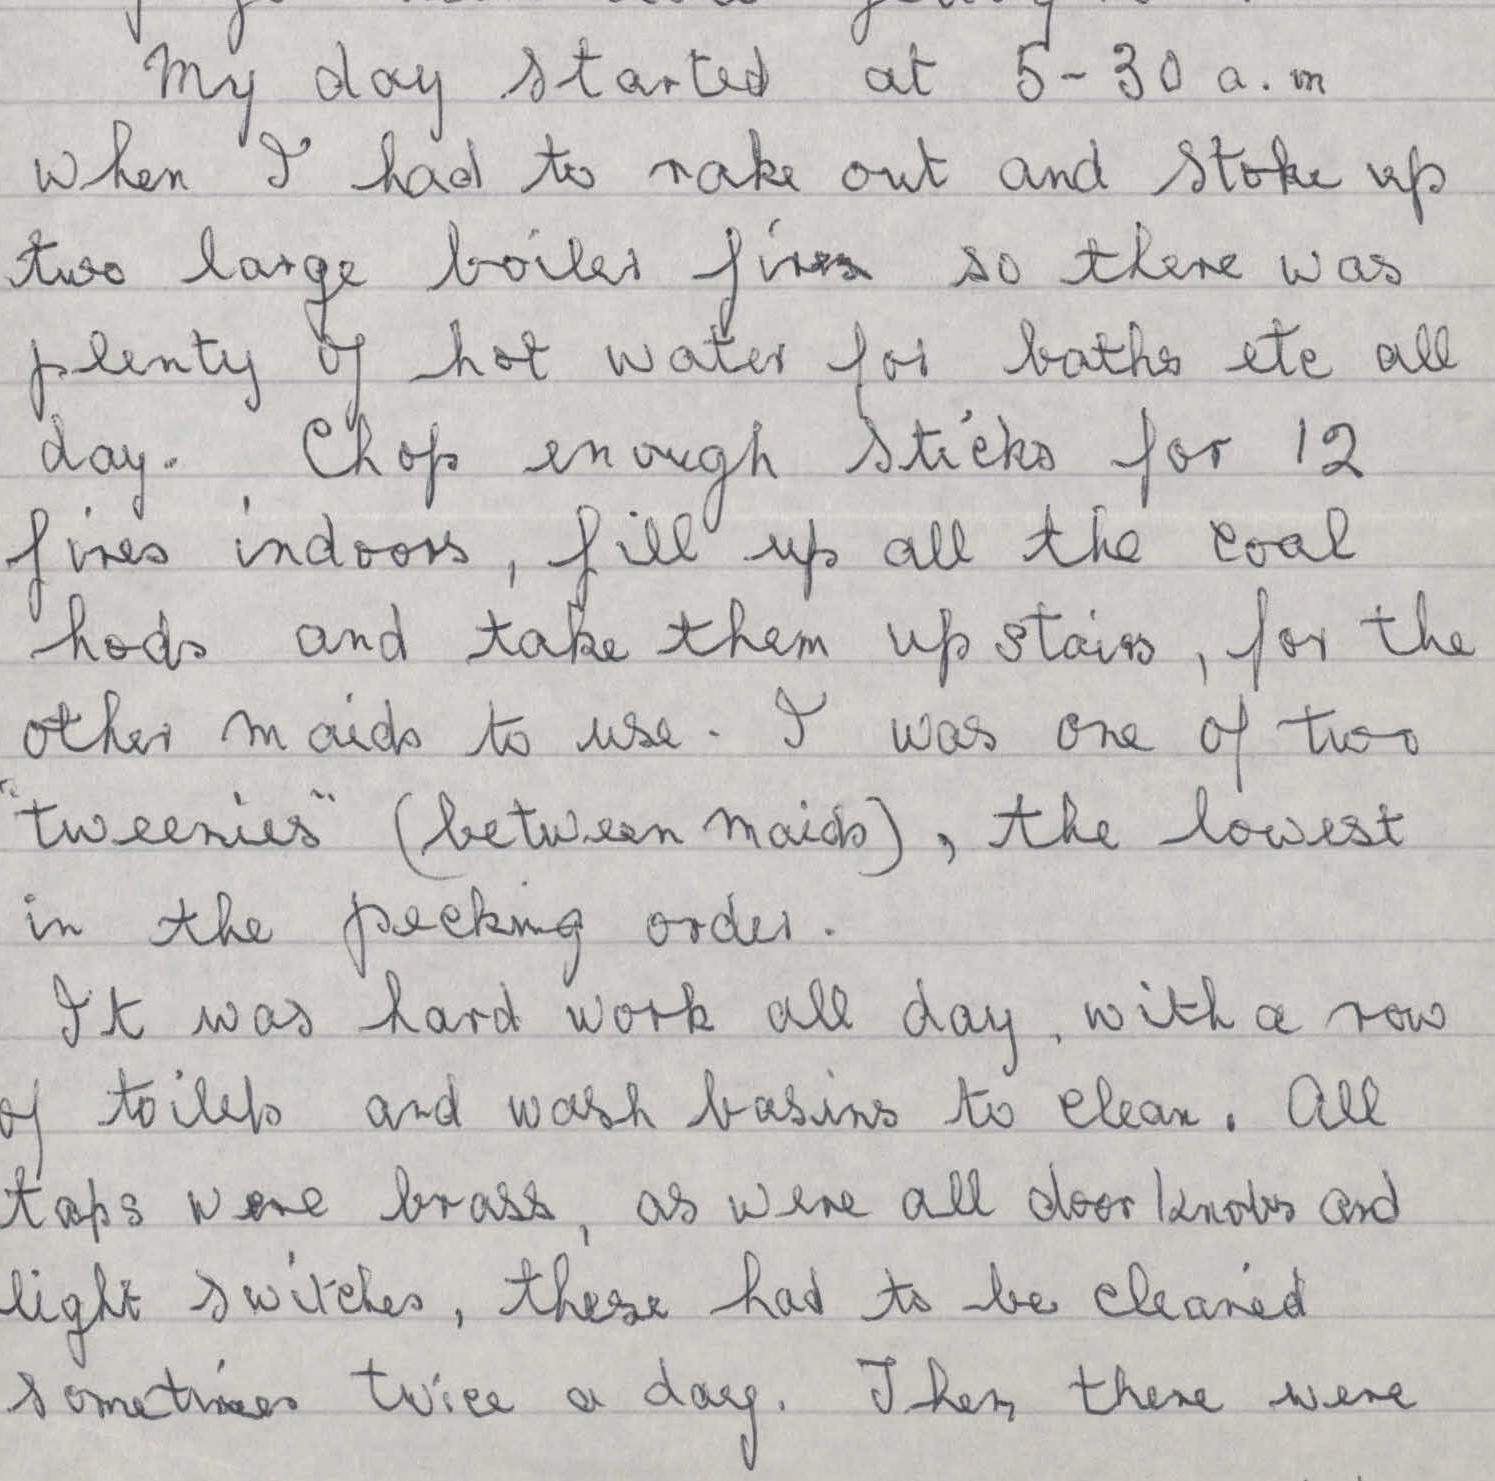 My day started at 5-30 a.m
when I had to rake out and stoke up
two large boiler fires so there was
plenty of hot water for baths etc all
day. Chop enough sticks for 12
fires indoors, fill up all the coal
hods and take them up stairs, for the
other maids to use. I was one of two
"tweenies" (between maids), the lowest
in the pecking order.
It was hard work all day, with a row
of toilets and wash basins to clean. All
taps were brass, as were all door knobs and
light switches, these had to be cleaned
sometimes twice a day. Then there were